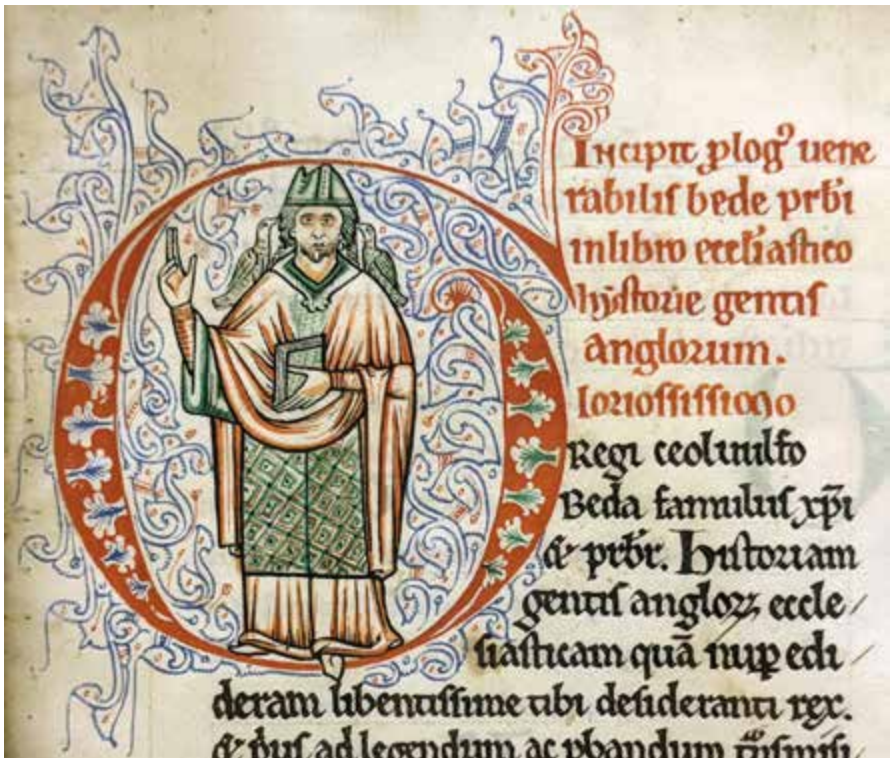 Incipit ꝓlogꝰ uene
rabilis bede pr̅bi
in libro eccl̅iastico
hystorie gentis
anglorum.
Gloriosissimo
Regi ceoluulfo
Beda famulus xp̅i
& pr̅br. Historiam
gentis angloꝝ eccle/
siasticam quā nuꝑ edi/
deram libentissime tibi desideranti rex.
& pͥus ad legendum ac ꝓbandum